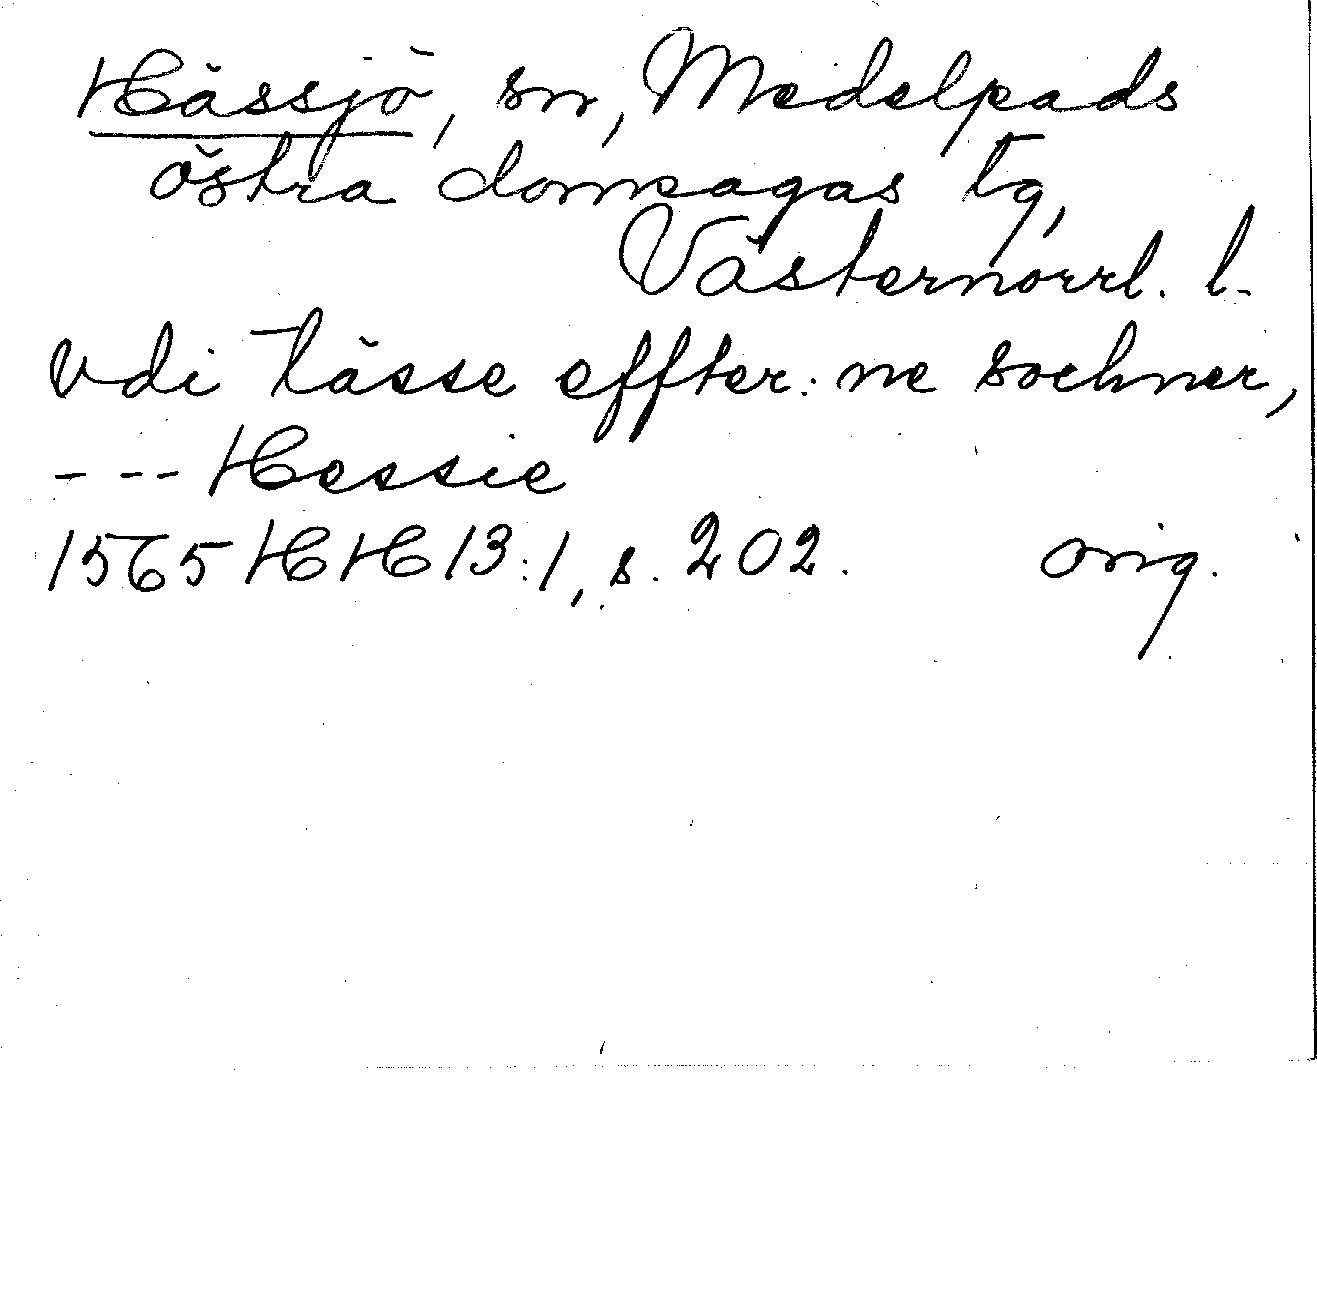 Hässjö, sn, Medelpads
östra domsagas tg,
Västernorrl. l.
vdi tässe effter:ne sochner,
--- Hessie
1565 HH 13:1, s. 202. orig.